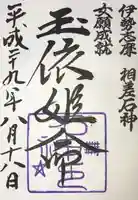 伊勢志摩 相差石神
女願成就
玉依姫命
平成二十九年八月十六日